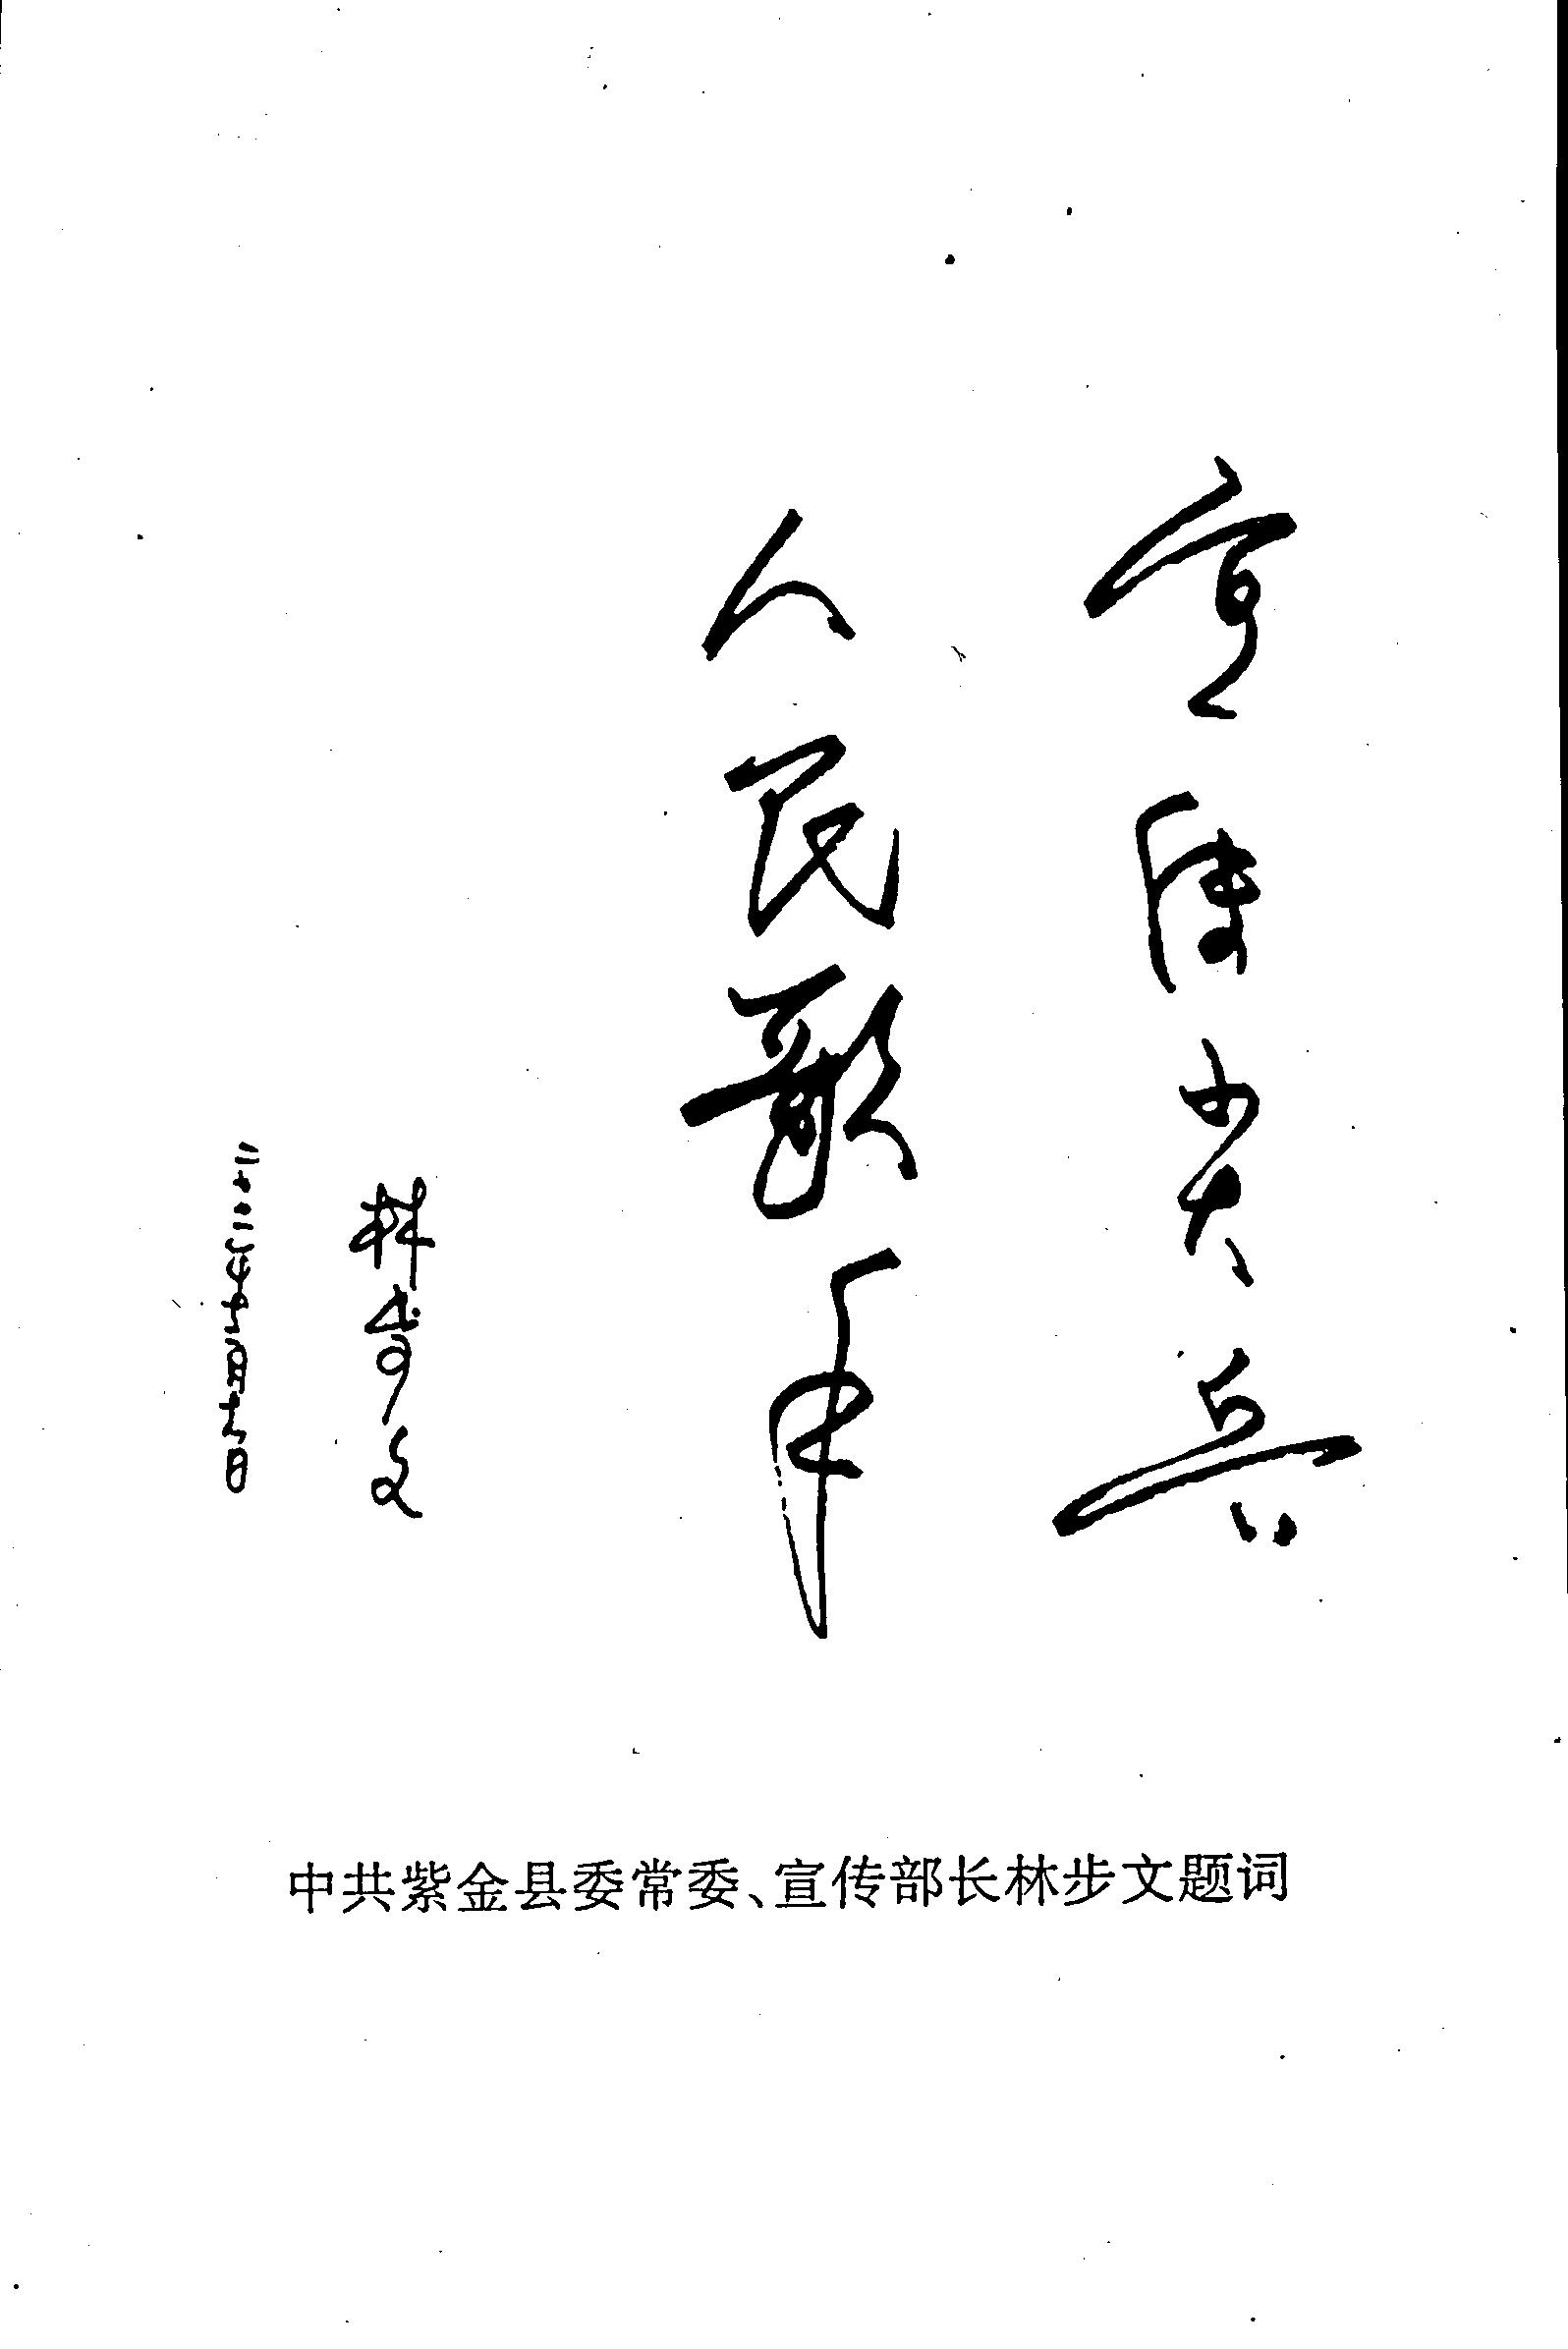 宣传尖兵
人民歌手
林步文
二〇〇二年十一月十六日
中共紫金县委常委、宣传部长林步文题词